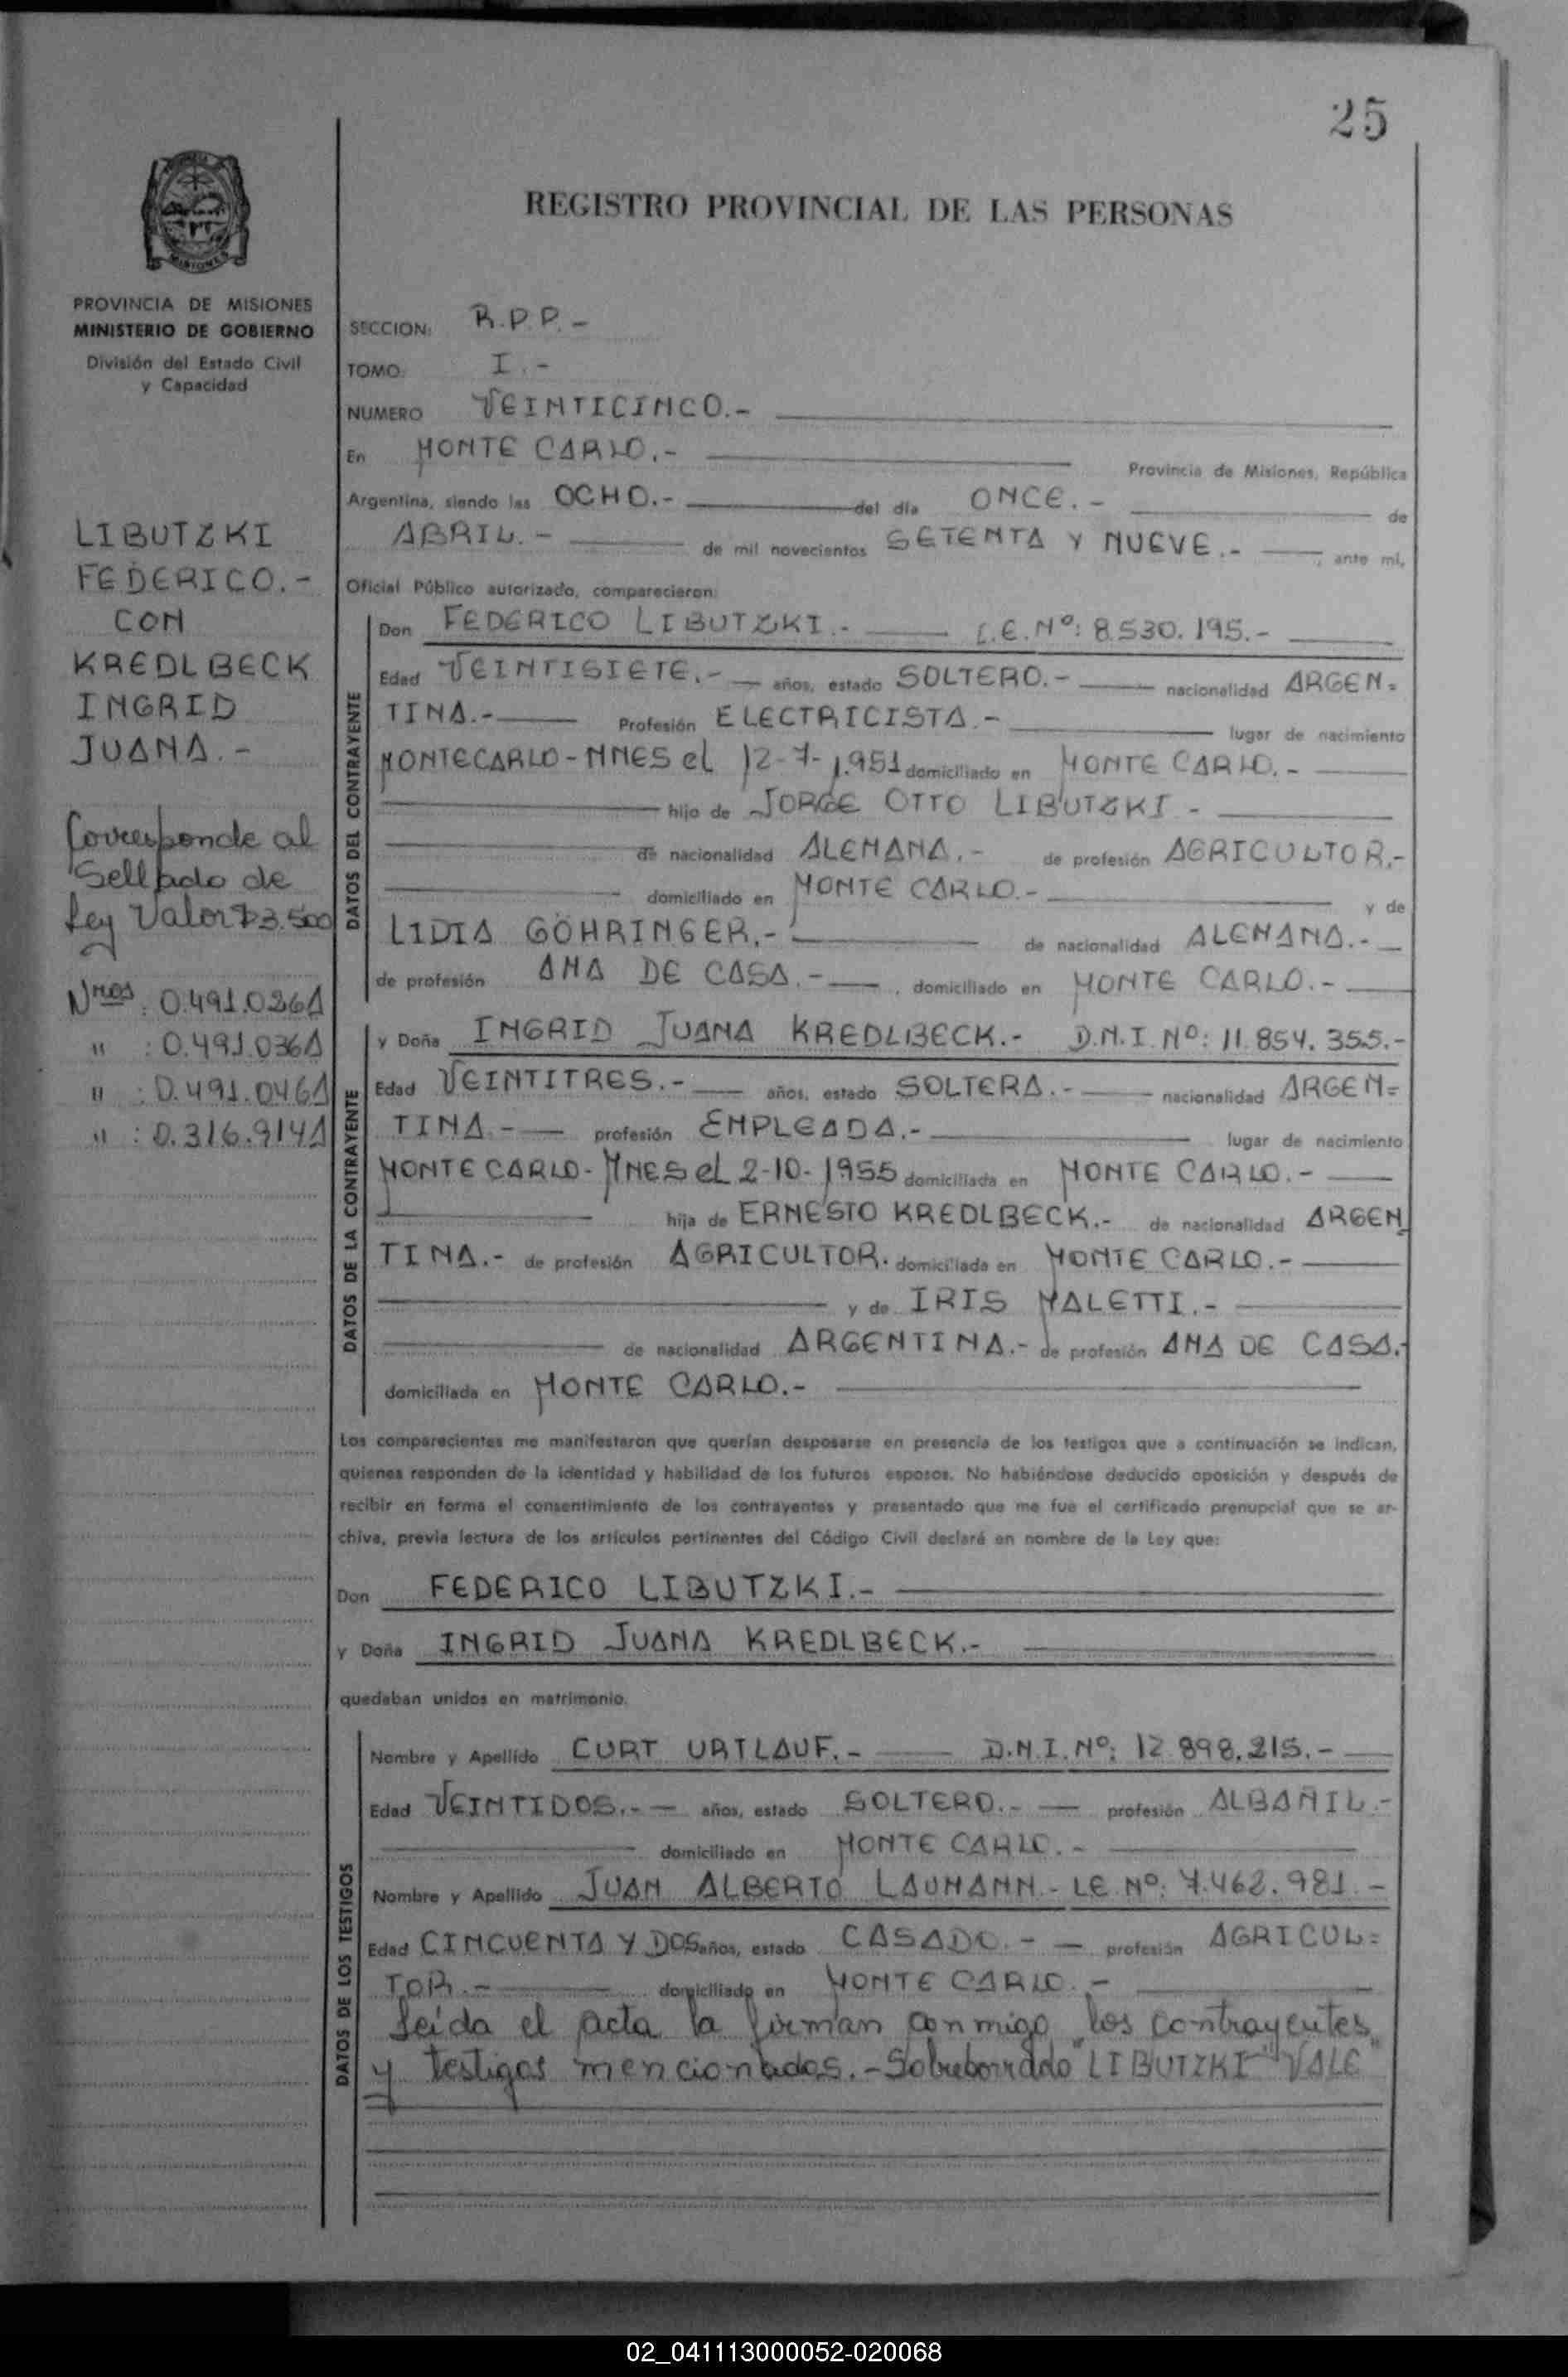 25
REGISTRO PROVINCIAL DE LAS PERSONAS
MISIONES
PROVINCIA DE MISIONES
MINISTERIO DE GOBIERNO
División del Estado Civil
y Capacidad
LIBUTZKI
FEDERICO.-
CON
KREDLBECK
INGRID
JUANA.-
Corresponde al
Sellado de
Ley Valor $3.500
Nros: 0.491.0261
" : 0.491.0361
" : 0.491.0461
" : 0.316.9141
SECCION: R.P.P.-
TOMO: I.-
NUMERO VEINTICINCO.-
En MONTE CARLO.- Provincia de Misiones, República
Argentina, siendo las OCHO.- del día ONCE.- de
ABRIL.- de mil novecientos SETENTA Y NUEVE.- , ante mí,
Oficial Público autorizado, comparecieron:
DATOS DEL CONTRAYENTE
Don FEDERICO LIBUTZKI.- L.E.Nº: 8.530.195.-
Edad VEINTISIETE.- años, estado SOLTERO.- nacionalidad ARGEN=
TINA.- Profesión ELECTRICISTA.- lugar de nacimiento
MONTECARLO-MNES el 12-7-1.951 domiciliado en MONTE CARLO.-
hijo de JORGE OTTO LIBUTZKI.-
de nacionalidad ALEMANA.- de profesión AGRICULTOR.-
domiciliado en MONTE CARLO.- y de
LIDIA GÖHRINGER.- de nacionalidad ALEMANA.-
de profesión AMA DE CASA.- , domiciliado en MONTE CARLO.-
DATOS DE LA CONTRAYENTE
y Doña INGRID JUANA KREDLBECK.- D.N.I.Nº: 11.854.355.-
Edad VEINTITRES.- años, estado SOLTERA.- nacionalidad ARGEN=
TINA.- profesión EMPLEADA.- lugar de nacimiento
MONTECARLO-MNES el 2-10-1955 domiciliada en MONTE CARLO.-
hija de ERNESTO KREDLBECK.- de nacionalidad ARGEN
TINA.- de profesión AGRICULTOR. domiciliada en MONTE CARLO.-
y de IRIS MALETTI.-
de nacionalidad ARGENTINA.- de profesión AMA DE CASA.-
domiciliada en MONTE CARLO.-
Los comparecientes me manifestaron que querían desposarse en presencia de los testigos que a continuación se indican,
quienes responden de la identidad y habilidad de los futuros esposos. No habiéndose deducido oposición y después de
recibir en forma el consentimiento de los contrayentes y presentado que me fue el certificado prenupcial que se ar-
chiva, previa lectura de los artículos pertinentes del Código Civil declaré en nombre de la Ley que:
Don FEDERICO LIBUTZKI.-
y Doña INGRID JUANA KREDLBECK.-
quedaban unidos en matrimonio.
DATOS DE LOS TESTIGOS
Nombre y Apellido CURT URTLAUF.- D.N.I.Nº: 12.898.215.-
Edad VEINTIDOS.- años, estado SOLTERO.- profesión ALBAÑIL.-
domiciliado en MONTE CARLO.-
Nombre y Apellido JUAN ALBERTO LAUMANN.- L.E.Nº: 7.462.981.-
Edad CINCUENTA Y DOS años, estado CASADO.- profesión AGRICUL=
TOR.- domiciliado en MONTE CARLO.-
Leída el acta la firman conmigo los contrayentes
y testigos mencionados.-Sobreborrado "LIBUTZKI" "VALE"
02_041113000052-020068